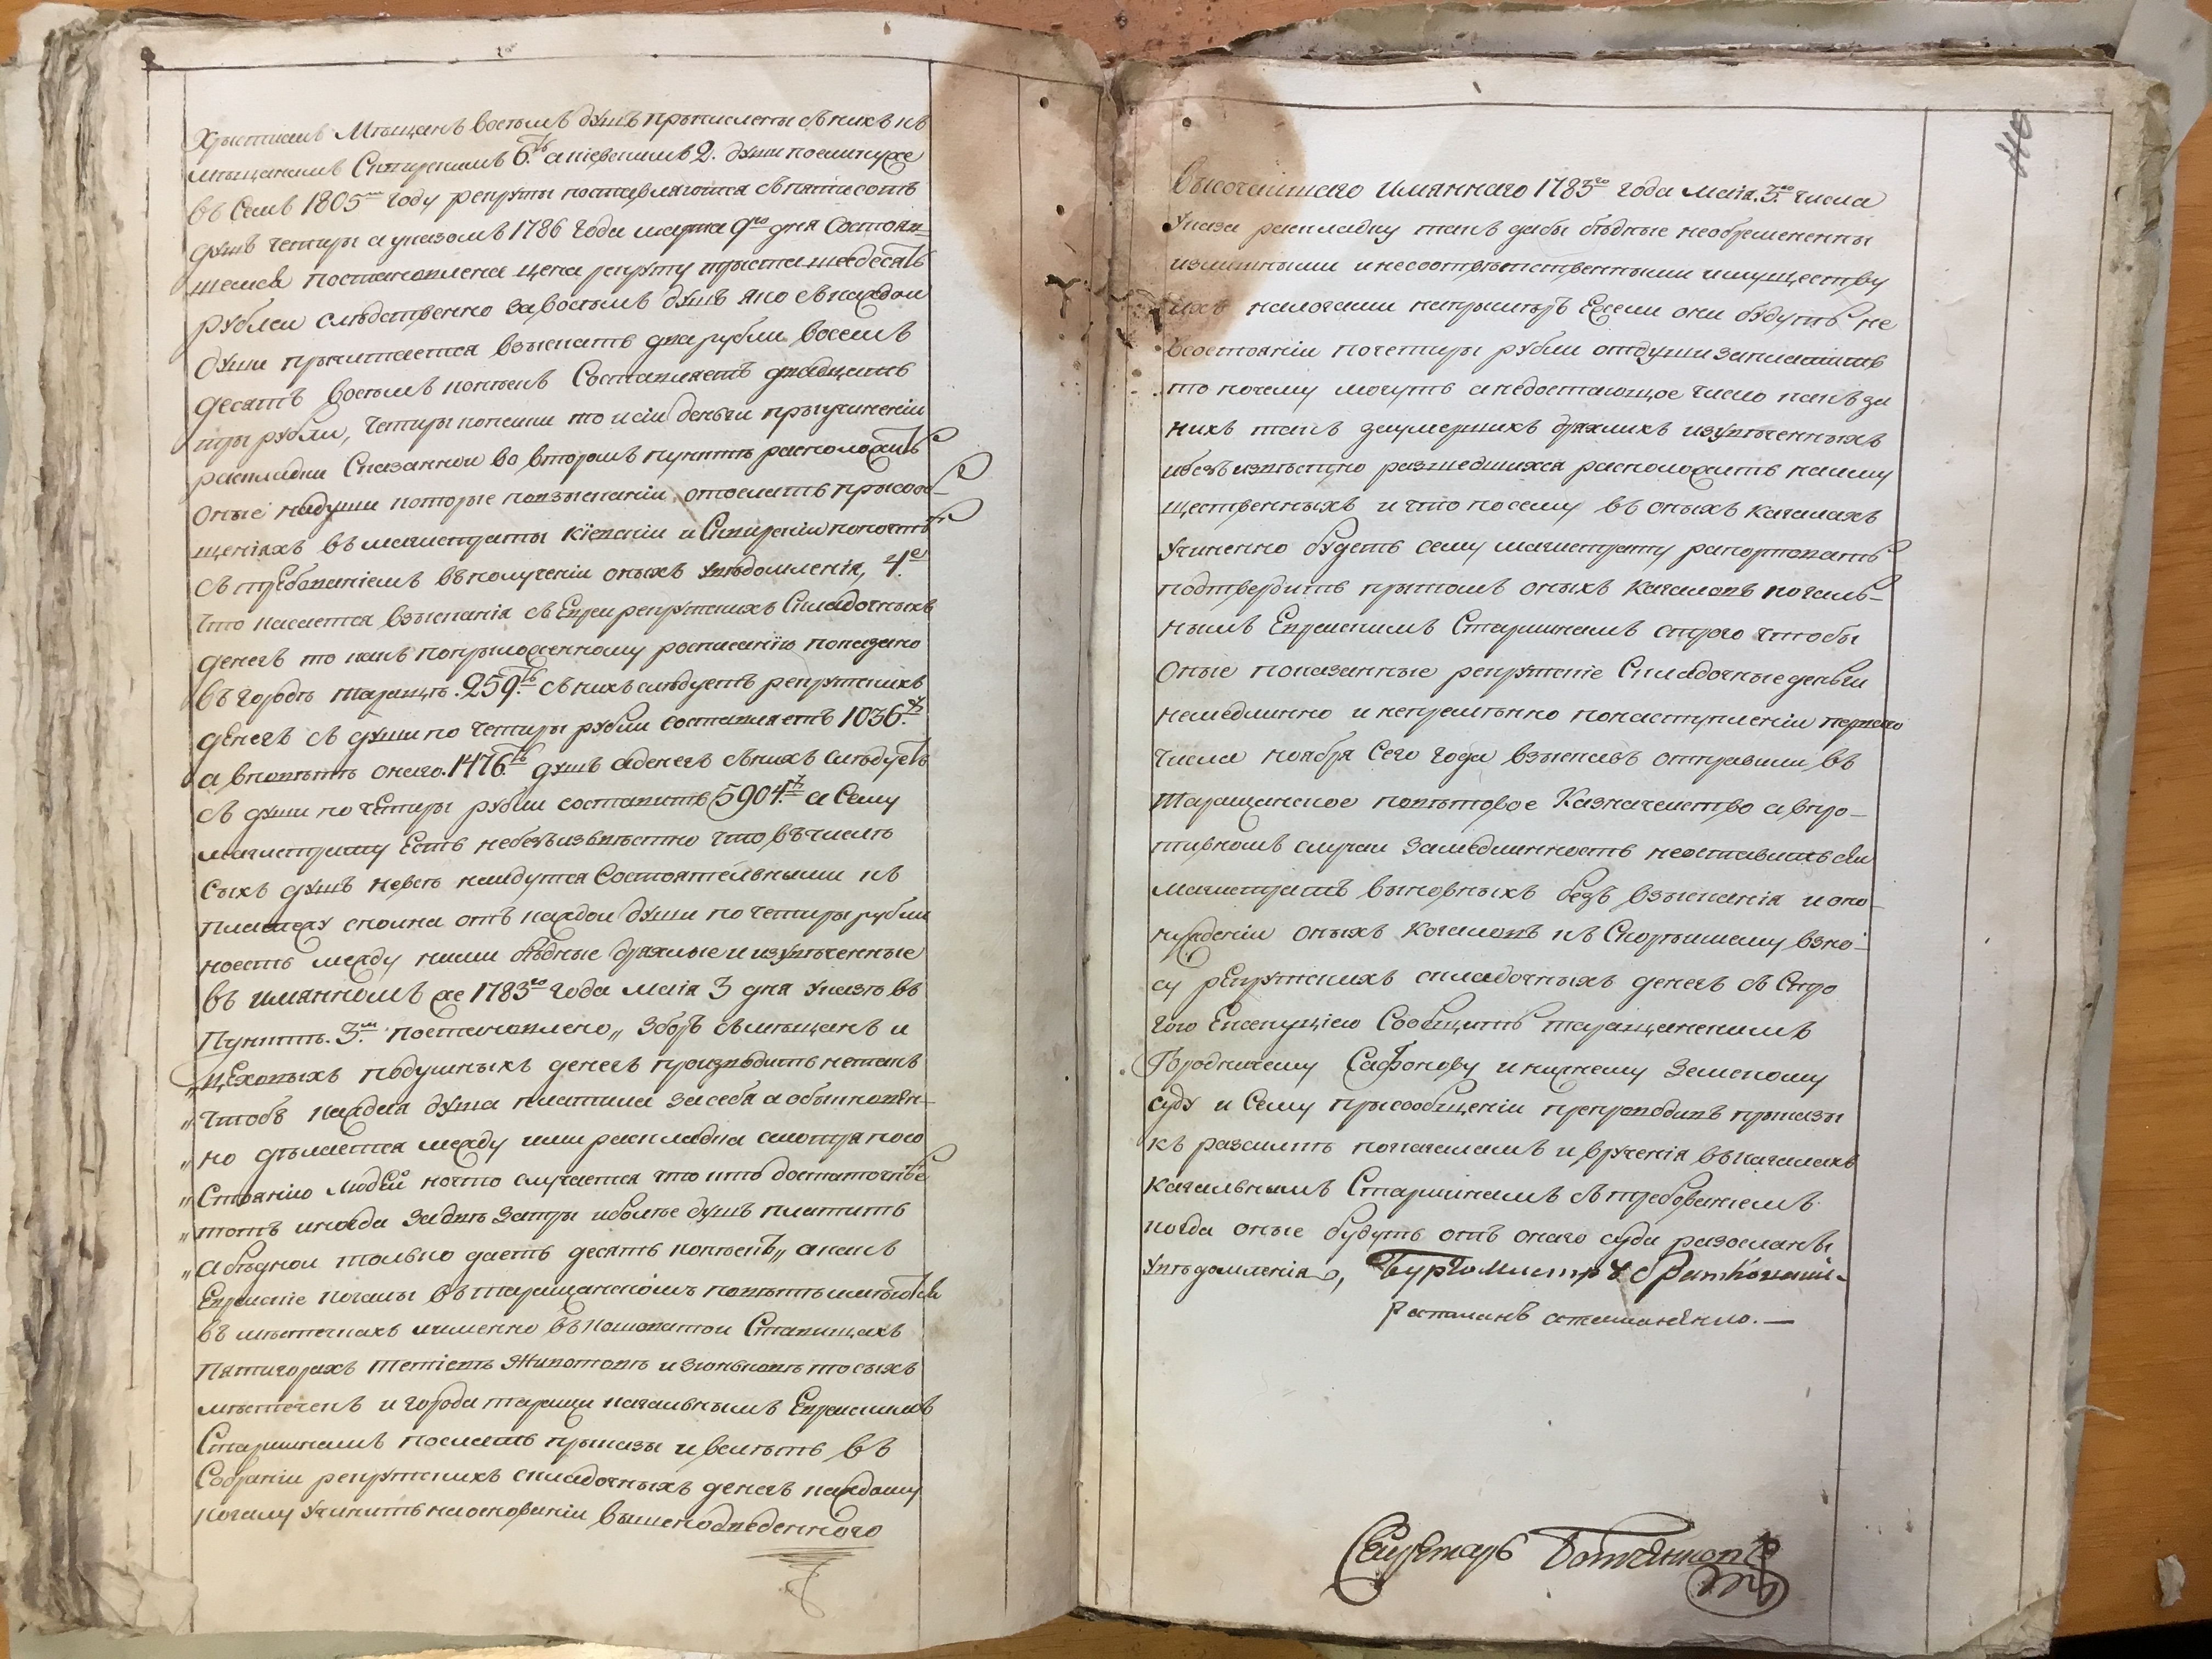 Христианъ Мѣщанъ восемъ душъ причислены съ нихъ къ
мѣщанамъ Сквирскимъ 6.ть а киевскимъ 2. души поелику же
въ семъ 1805мъ году рекруты поставляются съ пяти сотъ
душъ четыри а указомъ 1786 года марта 9го дня состояв-
шемся постановлена цена рекруту триста шесдесатъ
рублей слѣдственно за восемъ душъ яко съ каждой
души причитается взыскать два рубли восемъ
десатъ восемъ копѣекъ составляетъ двадцать
три рубли, четыри копейки то и сіи деньги при учиненіи
раскладки сказанной во второмъ пунктѣ расположить
оные на души которые по взысканіи отослать при сооб-
щеніяхъ въ магистраты кіевскій и Сквирскій по почтѣ
съ требованіемъ въ полученіи оныхъ увѣдомленія, 4е
Что касается взысканія съ Евреи рекрутскихъ складочныхъ
денегъ то какъ по приложенному росписанію показано
въ городѣ таращѣ. 259.ть съ нихъ слѣдуетъ рекрутскихъ
денегъ съ души по четыри рубли составляетъ 1036.
а в повѣтѣ онаго. 1476.ть душъ а денегъ съ нихъ слѣдуетъ
съ души по четыри рубли составитъ 5904. а сему
магистрату есть небезъизвѣстно что въ числѣ
сыхъ душъ не всѣ найдутся состоятельными къ
платежу сполна отъ каждой души по четыри рубли
ность между ними бѣдные дряхлые и изувѣченные
въ имянномъ же 1783го года маія 3 дня указѣ въ
пунктѣ. 3.мъ постановлено „ зборъ съ мѣщанъ и
„ цеховыхъ подушныхъ денегъ производить не такъ
„ чтобъ каждая душа платила за себя а обыкновен-
„ но дѣлается между ими раскладка смотря по со
„ стоянію людей ночто случается что кто достаточнѣе
„ тотъ иногда за двѣ за три и болѣе душъ платитъ
„ а бѣдной только даетъ десять копѣекъ „ а какъ
Еврейскіе кагалы въ таращанскомъ повѣтѣ имѣются
въ мѣстечкахъ именно въ кошоватой Ставищахъ
пятигорахъ тетіевѣ Животовѣ и зюньковѣ то сыхъ
мѣстечекъ и города таращи кагальнымъ Еврейскимъ
Старшинамъ послать приказы и велѣть въ
собраніи рекрутскихъ складочныхъ денегъ каждому
кагалу учинить на основаніи вышеподведенного
Высочайшаго имяннаго 1783го года маіа. 3.го числа
указа раскладку такъ дабы бѣдные необременены
излишными и несоотвѣтственными имуществу
ихъ налогами напримѣръ Ежели они будутъ не
в состояніи по четыри рубли отъ души заплатить
то по чему могутъ а недостающое число какъ за
нихъ такъ за умершихъ дряхлихъ изувѣченныхъ
и безъизвѣстно разшедшихся расположить на иму
щественныхъ и что по сему въ оныхъ кагалахъ
учиненно будетъ сему магистрату рапортовать
подтвердить притомъ оныхъ кагаловъ кагаль-
нымъ Еврейскимъ Старшинамъ строго чтобы
оные показанные рекрутскіе складочные деньги
немедленно и непремѣнно по наступленіи первого
числа ноября сего года взыскавъ отправили въ
таращанское повѣтовое Казначейство а в про-
тивномъ случаи за медлинность не оставитъ сей
магистратъ виновныхъ безъ взысканія и о по-
нужденіи оныхъ кагаловъ къ скорѣйшему взно-
су рекрутскихъ складочныхъ денегъ съ стро
гою Екзекуціею Сообщить таращанскимъ
Городничему Сафонову и нижнему земскому
суду и сему при сообщеніи препроводивъ приказы
къ разсилкѣ по кагаламъ и врученія въ кагалахъ
кагальнымъ Старшинамъ съ требованіемъ
когда оные будутъ отъ онаго суда разосланы
увѣдомленія,
Бургомистръ
ратманъ
Секретарь